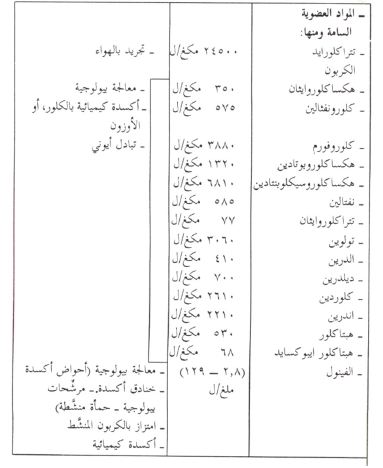 ـ المواد العضوية
السامة ومنها:
ـ تتراكلورايد ٢٤٥٠٠ مكغ/ل ـ تجريد بالهواء
الكربون
ـ هكساكلوروايثان ٣٥٠ مكغ/ل ـ معالجة بيولوجية
ـ كلورونفثالين ٥٧٥ مكغ/ل ـ أكسدة كيميائية بالكلور، أو
الأوزون
ـ كلوروفورم ٣٨٨٠ مكغ/ل ـ تبادل أيوني
ـ هكساكلوروبوتادين ١٣٢٠ مكغ/ل
ـ هكساكلوروسيكلوبنتادين ٦٨١٠ مكغ/ل
ـ نفتالين ٥٨٥ مكغ/ل
ـ تتراكلوروايثان ٧٧ مكغ/ل
ـ تولوين ٣٠٦٠ مكغ/ل
ـ الدرين ٤١٠ مكغ/ل
ـ ديلدرين ٧٠٠ مكغ/ل
ـ كلوردين ٢٦١٠ مكغ/ل
ـ اندرين ٢٢١٠ مكغ/ل
ـ هبتاكلور ٥٣٠ مكغ/ل
ـ هبتاكلور ايبوكسايد ٦٨ مكغ/ل
ـ الفينول (٢,٨ ـ ١٢٩) ـ معالجة بيولوجية (أحواض أكسدة
ملغ/ل ـ خنادق أكسدة ـ مرشّحات
بيولوجية ـ حمأة منشّطة)
ـ امتزاز بالكربون المنشّط
ـ أكسدة كيميائية